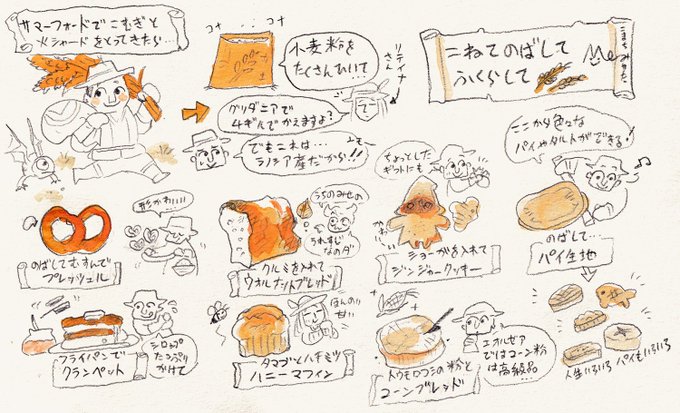 サマーフォードでこむぎと
火シャードをとってきたい…
コナ … コナ
小麦粉を
たくさんひいて…
リテイナー
さん
グリダニアで
4ギルでかえますよ?
でもこれは…
ラノシア産だから!!
こねてのばして
ふくらして
ここから色々な
パイやタルトができる!
のばして…
パイ生地
形かわいい
のばしてむすんで
プレッツェル
うちのみせの
うれすじ
なのダ
クルミを入れて
ウォルナットブレッド
ちょっとした
ギフトにも
かわいい
ショーがを入れて
ジンジャークッキー
シロップ
たっぷり
かけて
フライパンで
クランペット
ほんのり
甘い
タマゴとハチミツ
ハニーマフィン
エオルゼア
ではコーン粉
は高級品…
トウモロコシの粉と
コーンブレッド
人生いろいろ パイもいろいろ